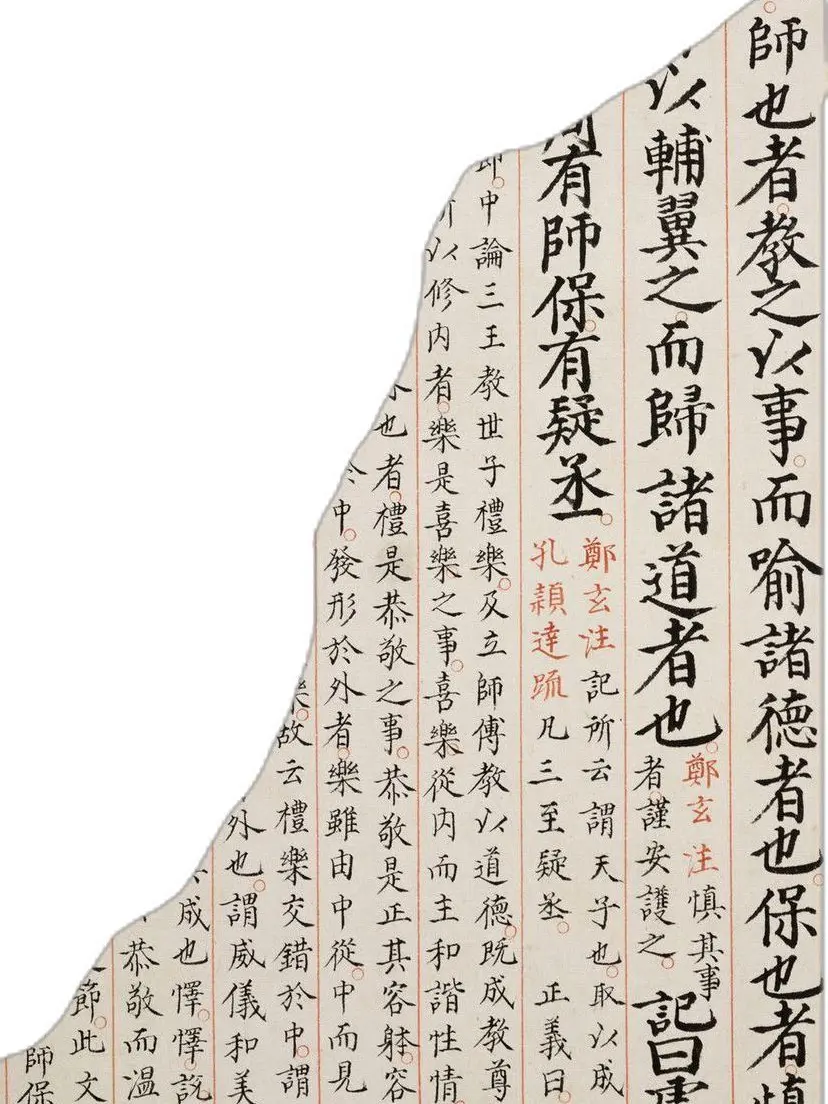 師也者教之以事而喻諸德者也保也者慎
以輔翼之而歸諸道者也
鄭玄注慎其事
者謹安護之
記曰虞
有師保有疑丞
鄭玄注記所云謂天子也取以成
孔穎達疏凡三至疑丞 正義曰
節中論三王教世子禮樂及立師傅教以道德既成教尊
所以修内者樂是喜樂之事喜樂從内而主和諧性情
也者禮是恭敬之事恭敬是正其容躰容
於中發形於外者樂雖由中從中而見
樂故云禮樂交錯於中謂
外也謂威儀和美
成也懌懌説
恭敬而溫
節此文
師保